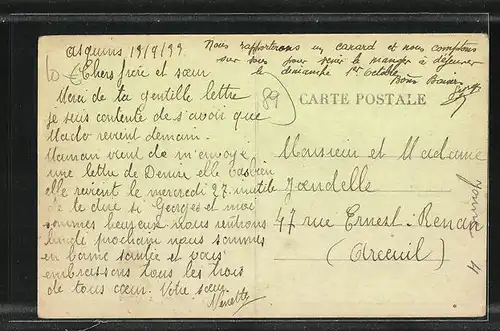 Asquins 19/9/33.
Nous rapporterons un canard et nous comptons
sur vous pour venir le manger à déjeuner
le dimanche 1er octobre
Bons Baisers
Chers frère et sœur
Merci de ta gentille lettre
je suis contente de savoir que
Mado revient demain.
Maman vient de m'envoyé
une lettre de Denise elle
elle revient le mercredi 27. inutile
de te dire si Georges et moi
sommes heureux nous rentrons
lundi prochain nous sommes
en bonne santée et vous
embrassons tous les trois
de tous cœur. Votre sœur.
Ninette
89
CARTE POSTALE
Monsieur et Madame
Joendelle
47 rue Ernest-Renan
(Arcueil)